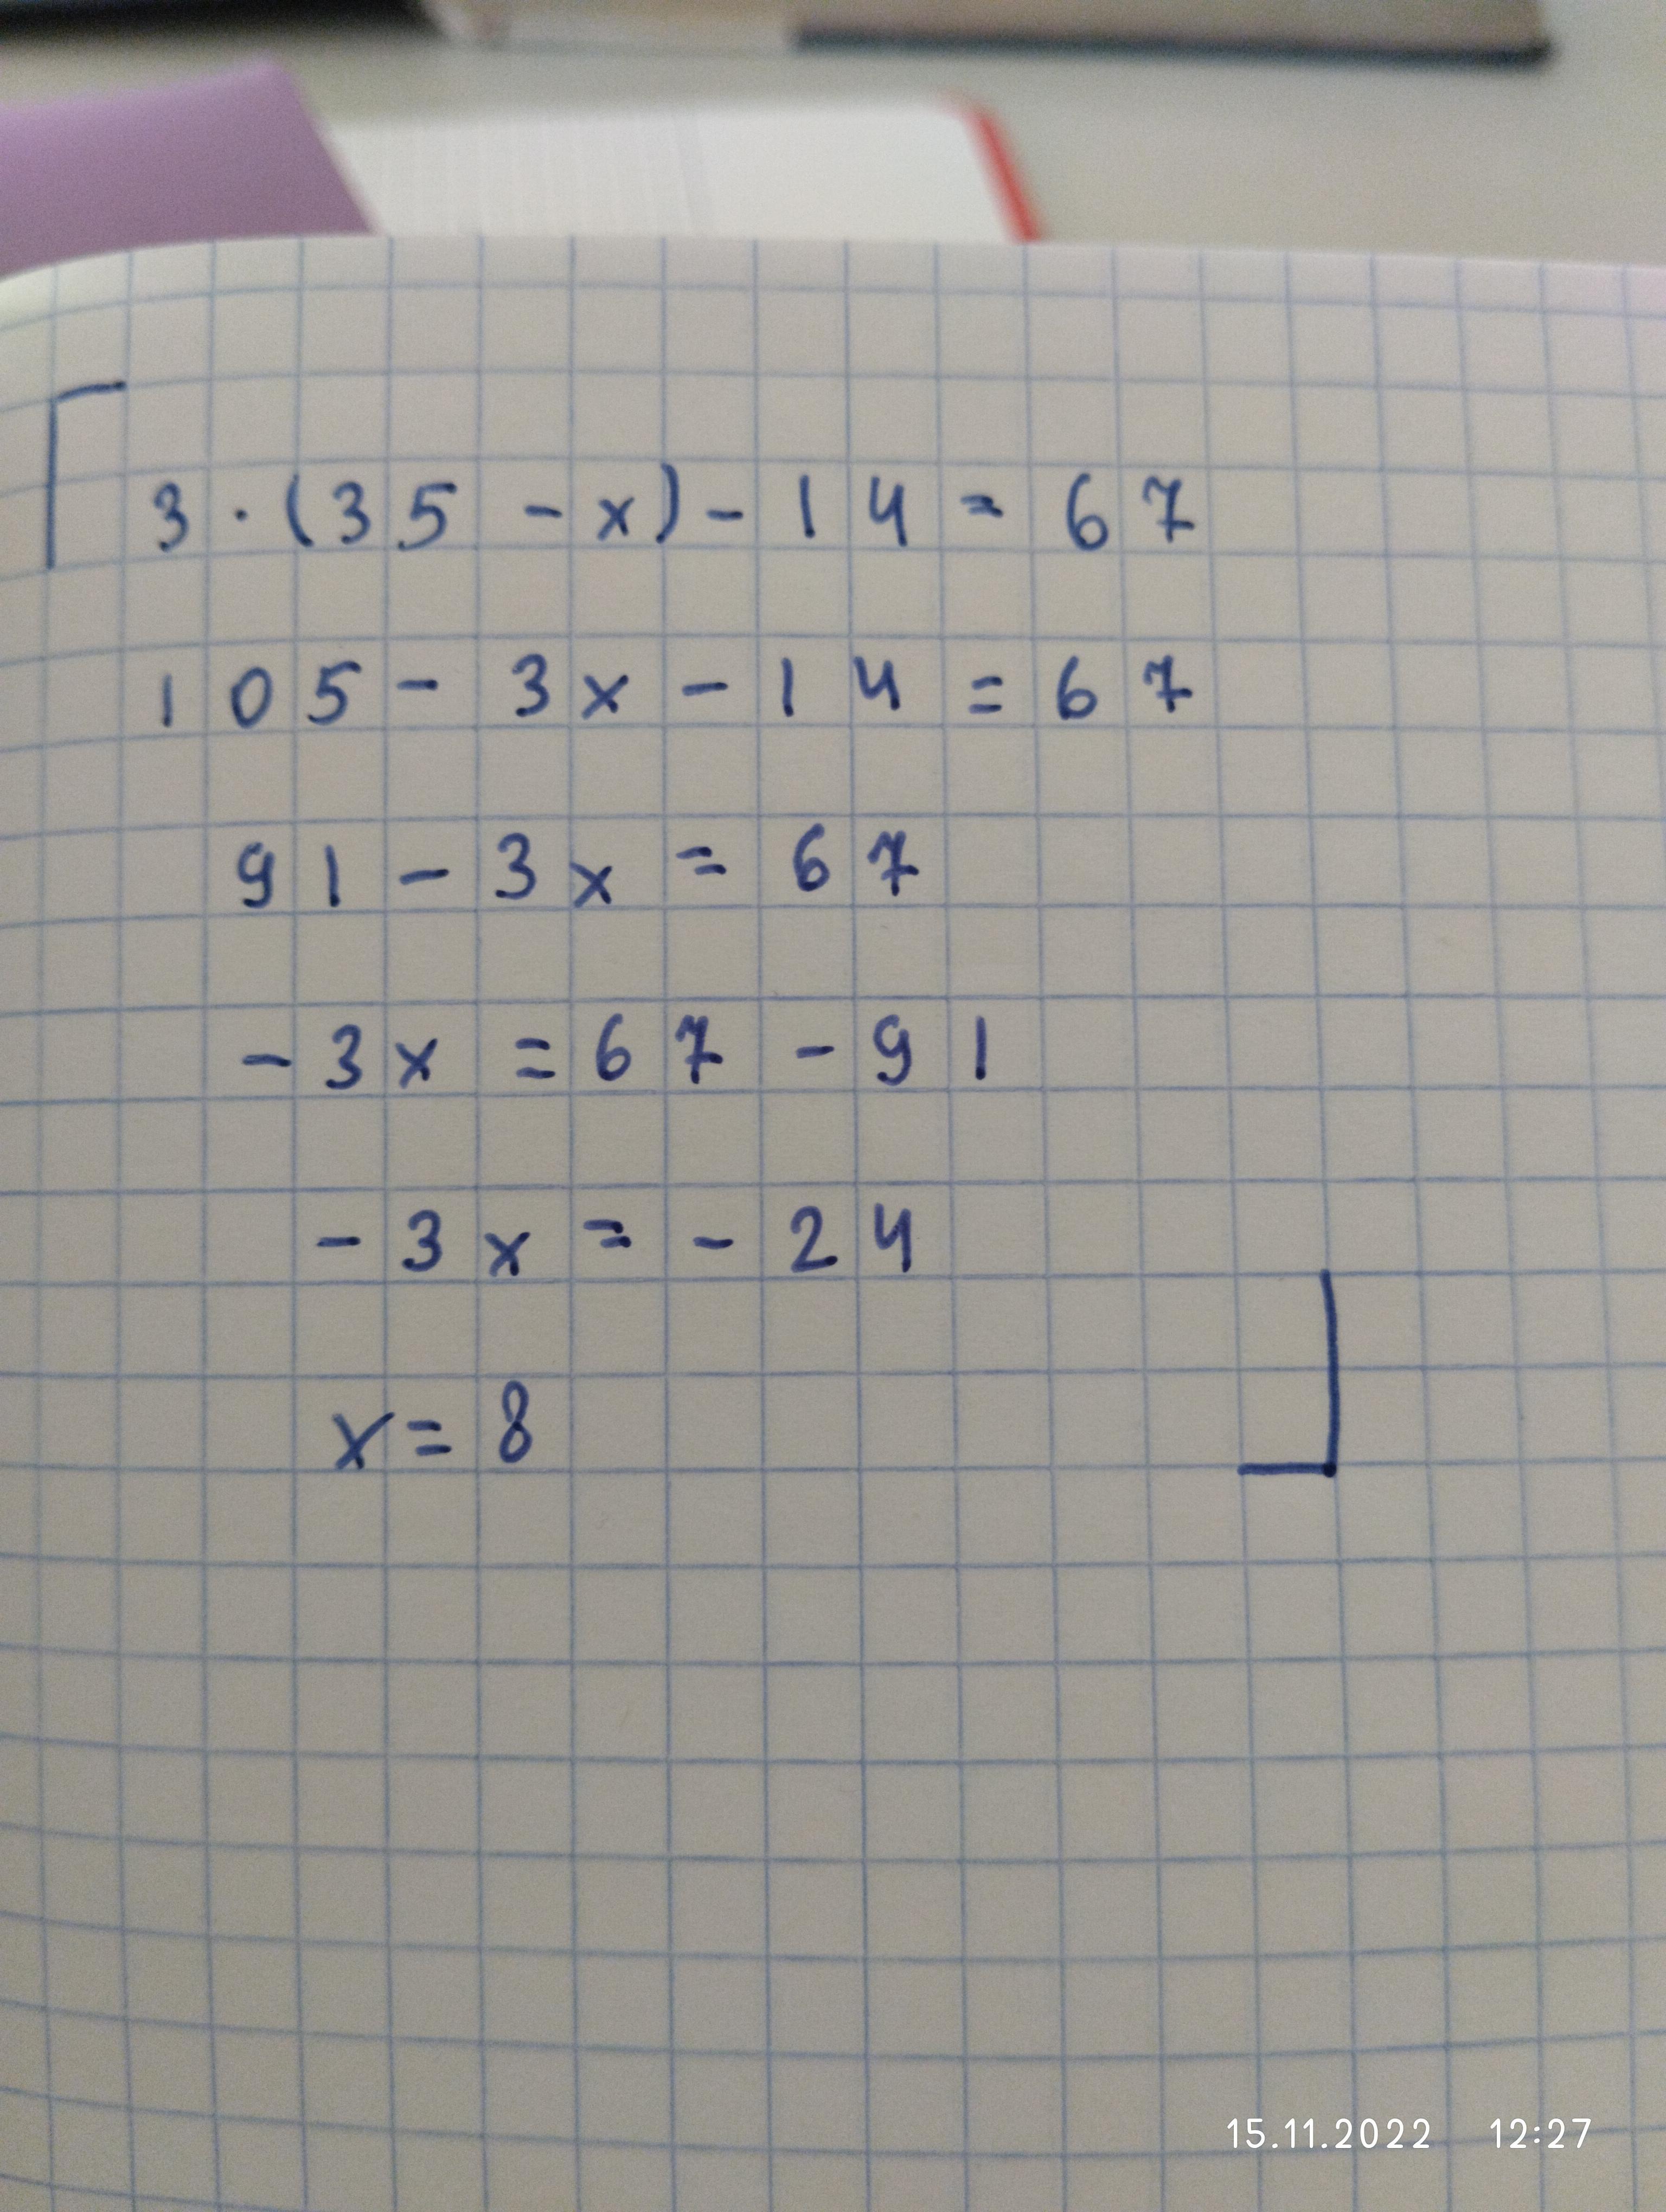 3 · (35 - x) - 14 = 67
105 - 3x - 14 = 67
91 - 3x = 67
- 3x = 67 - 91
- 3x = - 24
x = 8
15.11.2022 12:27